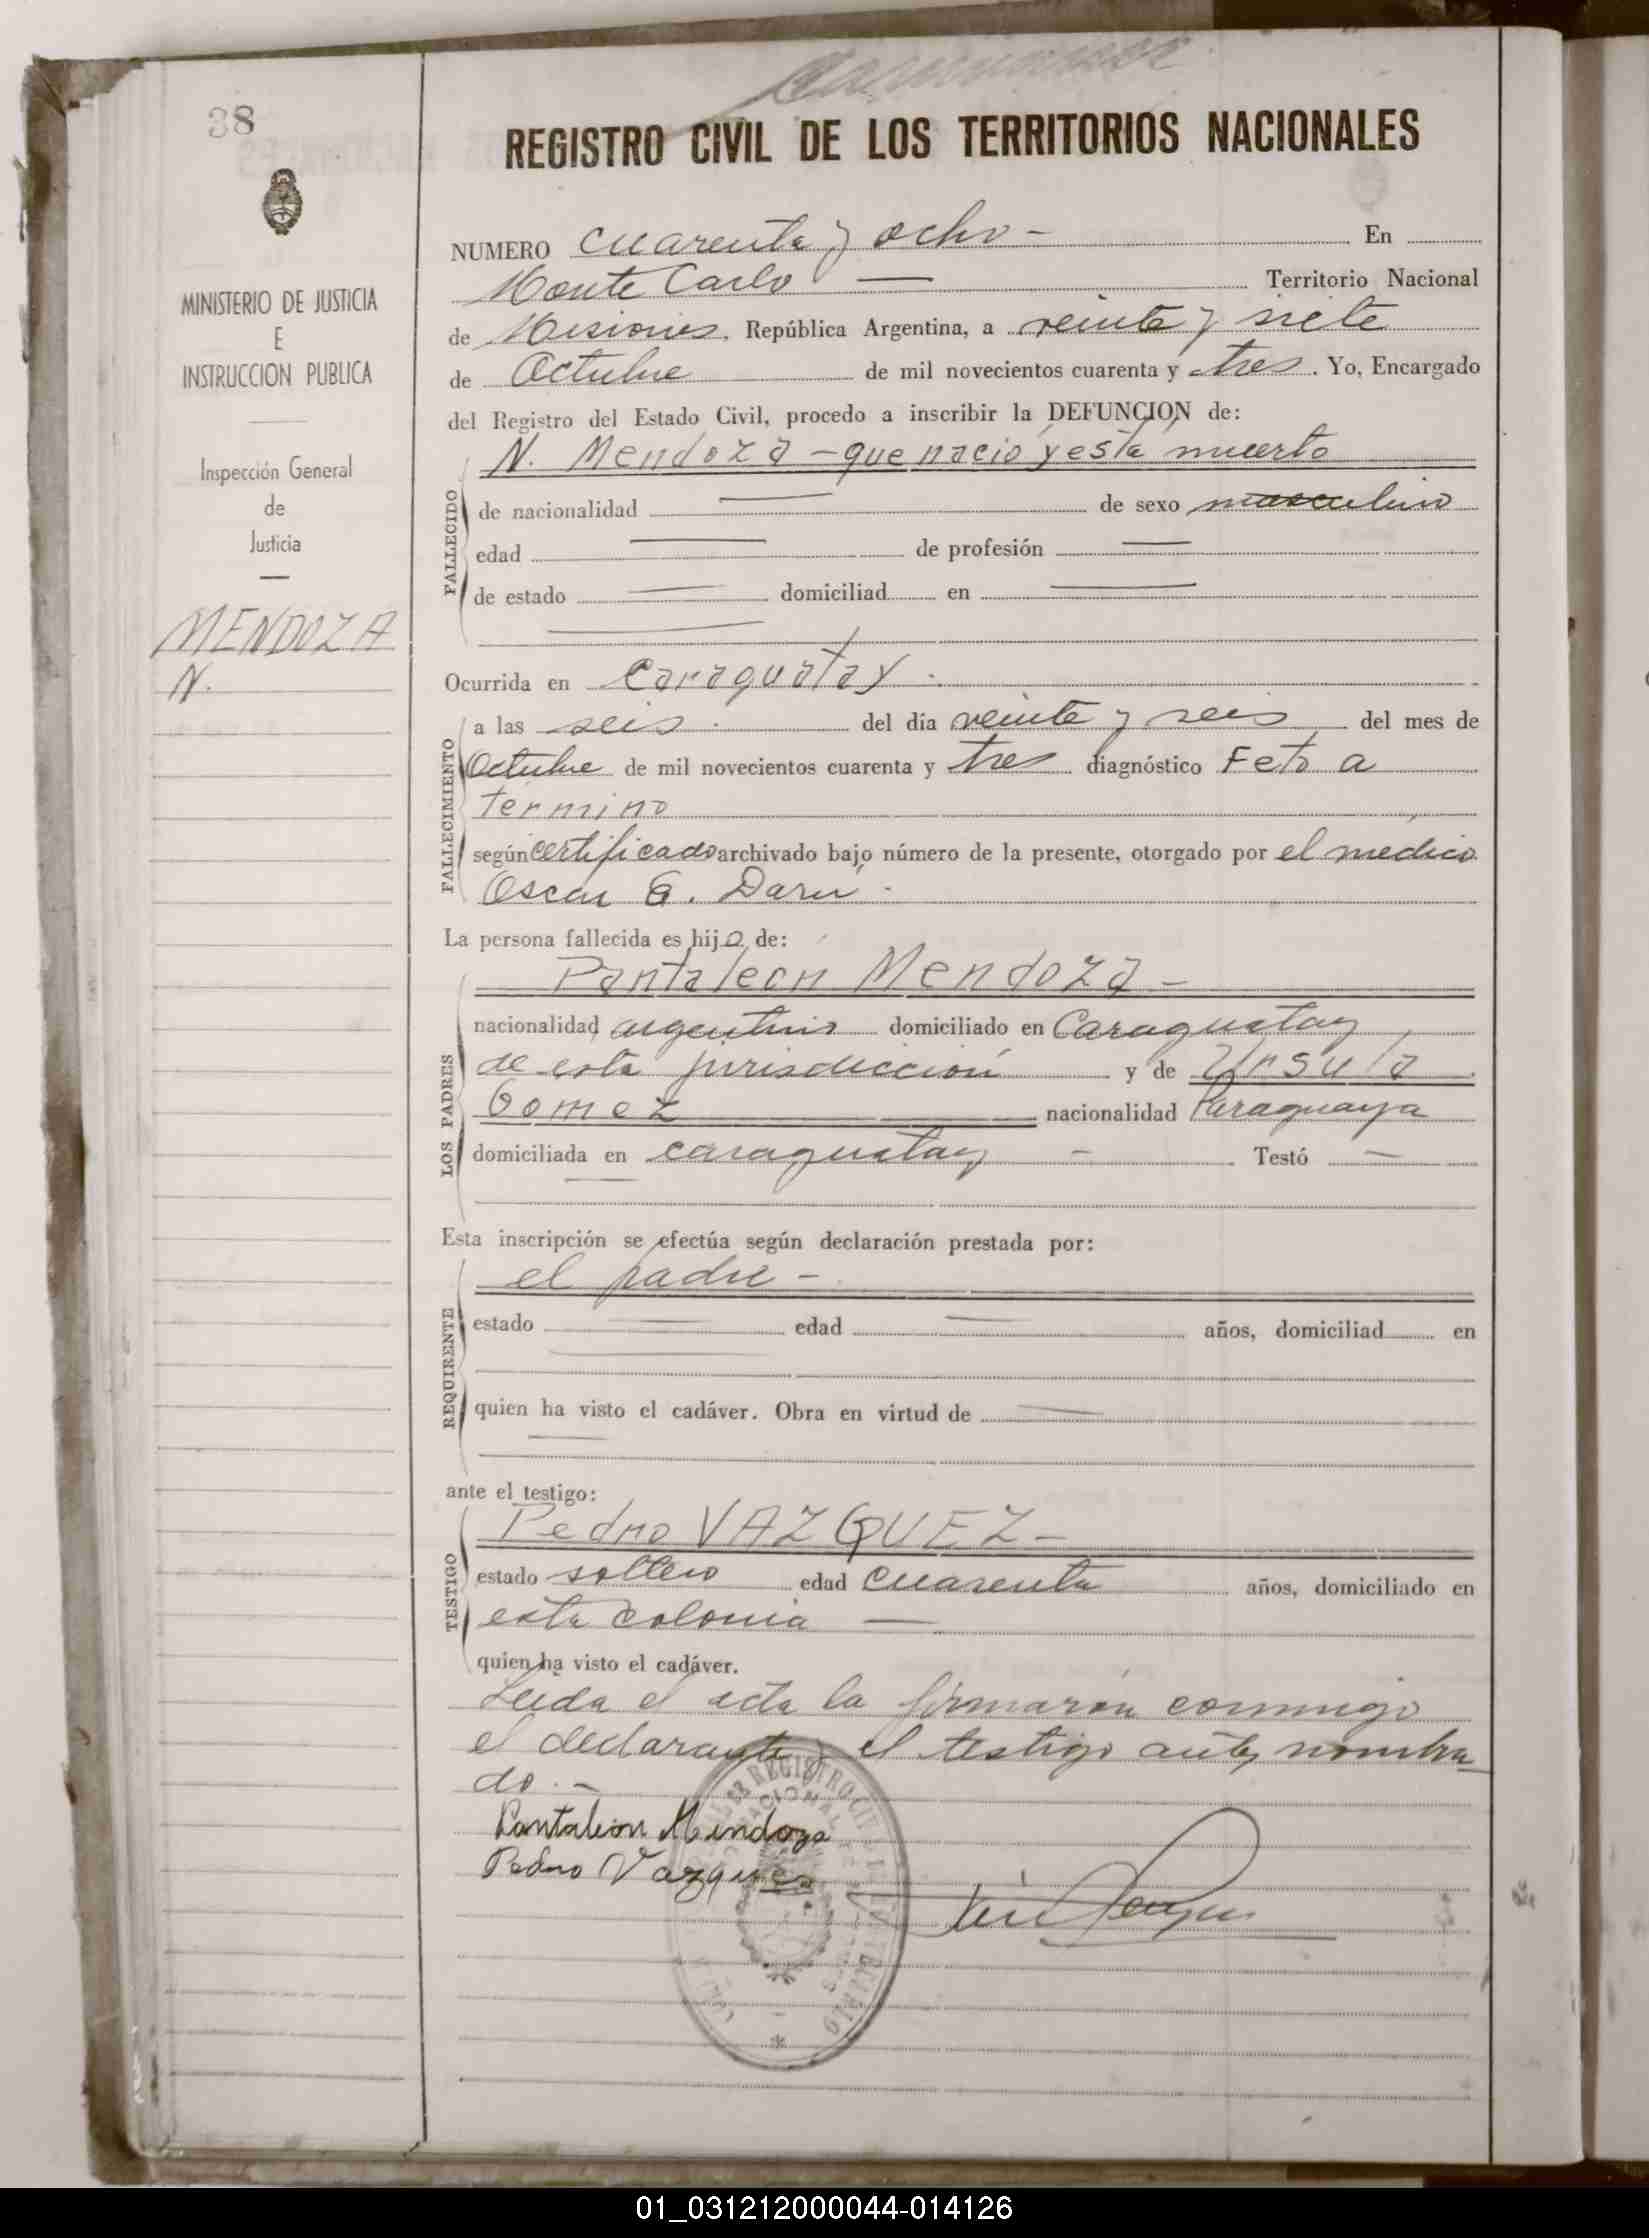 38
REGISTRO CIVIL DE LOS TERRITORIOS NACIONALES
MINISTERIO DE JUSTICIA
E
INSTRUCCION PUBLICA
Inspección General
de
Justicia
MENDOZA
N.
NUMERO cuarenta y ocho - En
Monte Carlo — Territorio Nacional
de Misiones, República Argentina, a veinte y siete
de Octubre de mil novecientos cuarenta y tres. Yo, Encargado
del Registro del Estado Civil, procedo a inscribir la DEFUNCION de:
N. Mendoza - que nació y está muerto
FALLECIDO
de nacionalidad — de sexo masculino
edad — de profesión —
de estado — domiciliad en —
Ocurrida en Caraguatay.
FALLECIMIENTO
a las seis. del día veinte y seis del mes de
Octubre de mil novecientos cuarenta y tres diagnóstico Feto a
término
según certificado archivado bajo número de la presente, otorgado por el médico
Oscar G. Daru.
La persona fallecida es hijo de:
LOS PADRES
Pantaleon Mendoza -
nacionalidad argentino domiciliado en Caraguatay
de esta jurisdicción y de Ursula
Gomez nacionalidad Paraguaya
domiciliada en caraguatay - Testó —
Esta inscripción se efectúa según declaración prestada por:
REQUIRENTE
el padre -
estado — edad — años, domiciliad en
quien ha visto el cadáver. Obra en virtud de —
ante el testigo:
TESTIGO
Pedro VAZQUEZ -
estado soltero edad cuarenta años, domiciliado en
esta colonia —
quien ha visto el cadáver.
Leida el acta la firmarón conmigo
el declarante y el testigo antes nombra
do. -
Pantaleon Mendoza
Pedro Vazquez
01_031212000044-014126